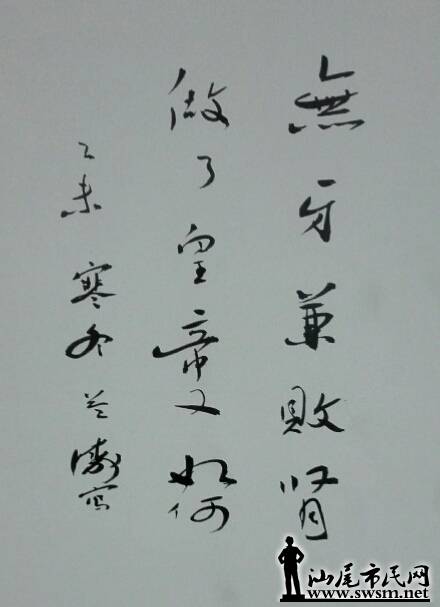 無牙兼敗肾
做了皇帝又如何
乙未寒冬写
汕尾市民网
www.swsm.net